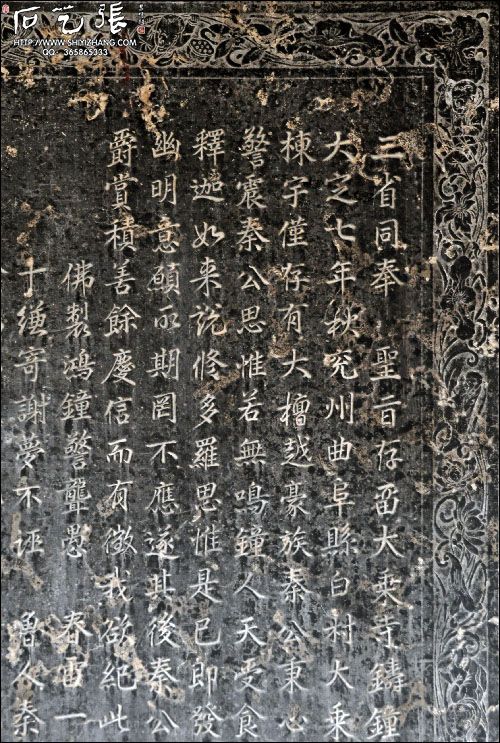 張艺石
WWW.SHIYIZHANG.COM
QQ：365865333
三省同奉 聖旨存留大乘寺鑄鐘
大定七年秋兖州曲阜縣白村大乘
棟宇僅存有大檀越豪族秦公秉心
警震秦公思惟若無鳴鐘人天受食
釋迦如来說修多羅思惟是已即發
幽明意願所期罔不應遂其後秦公
爵賞積善餘慶信而有徵我欲紀此
佛製鴻鐘警聾愚 春雷一
寄謝夢不誣 魯人秦